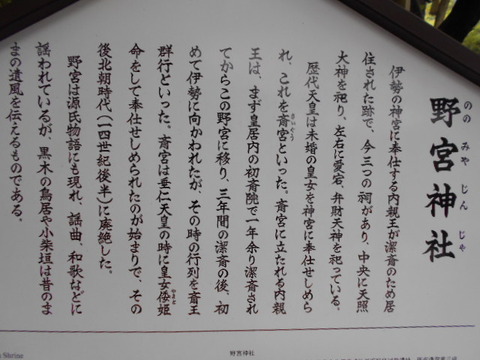 野宮神社
ののみやじんじゃ
伊勢の神宮に奉仕する内親王が潔斎のため居
住された跡で、今三つの祠があり、中央に天照
大神を祀り、左右に愛宕、弁財天神を祀っている。
歴代天皇は未婚の皇女を神宮に奉仕せしめら
れ、これを斎宮といった。斎宮に立たれる内親
さいぐう
王は、まず皇居内の初斎院で一年余り潔斎され
てからこの野宮に移り、三年間の潔斎の後、初
めて伊勢に向かわれたが、その時の行列を斎王
群行といった。斎宮は垂仁天皇の時に皇女倭姫
やまと
命をして奉仕せしめられたのが始まりで、その
後北朝時代(一四世紀後半)に廃絶した。
野宮は源氏物語にも現れ、謡曲、和歌などに
謡われているが、黒木の鳥居や小柴垣は昔のま
まの遺風を伝えるものである。
野宮神社
Shrine